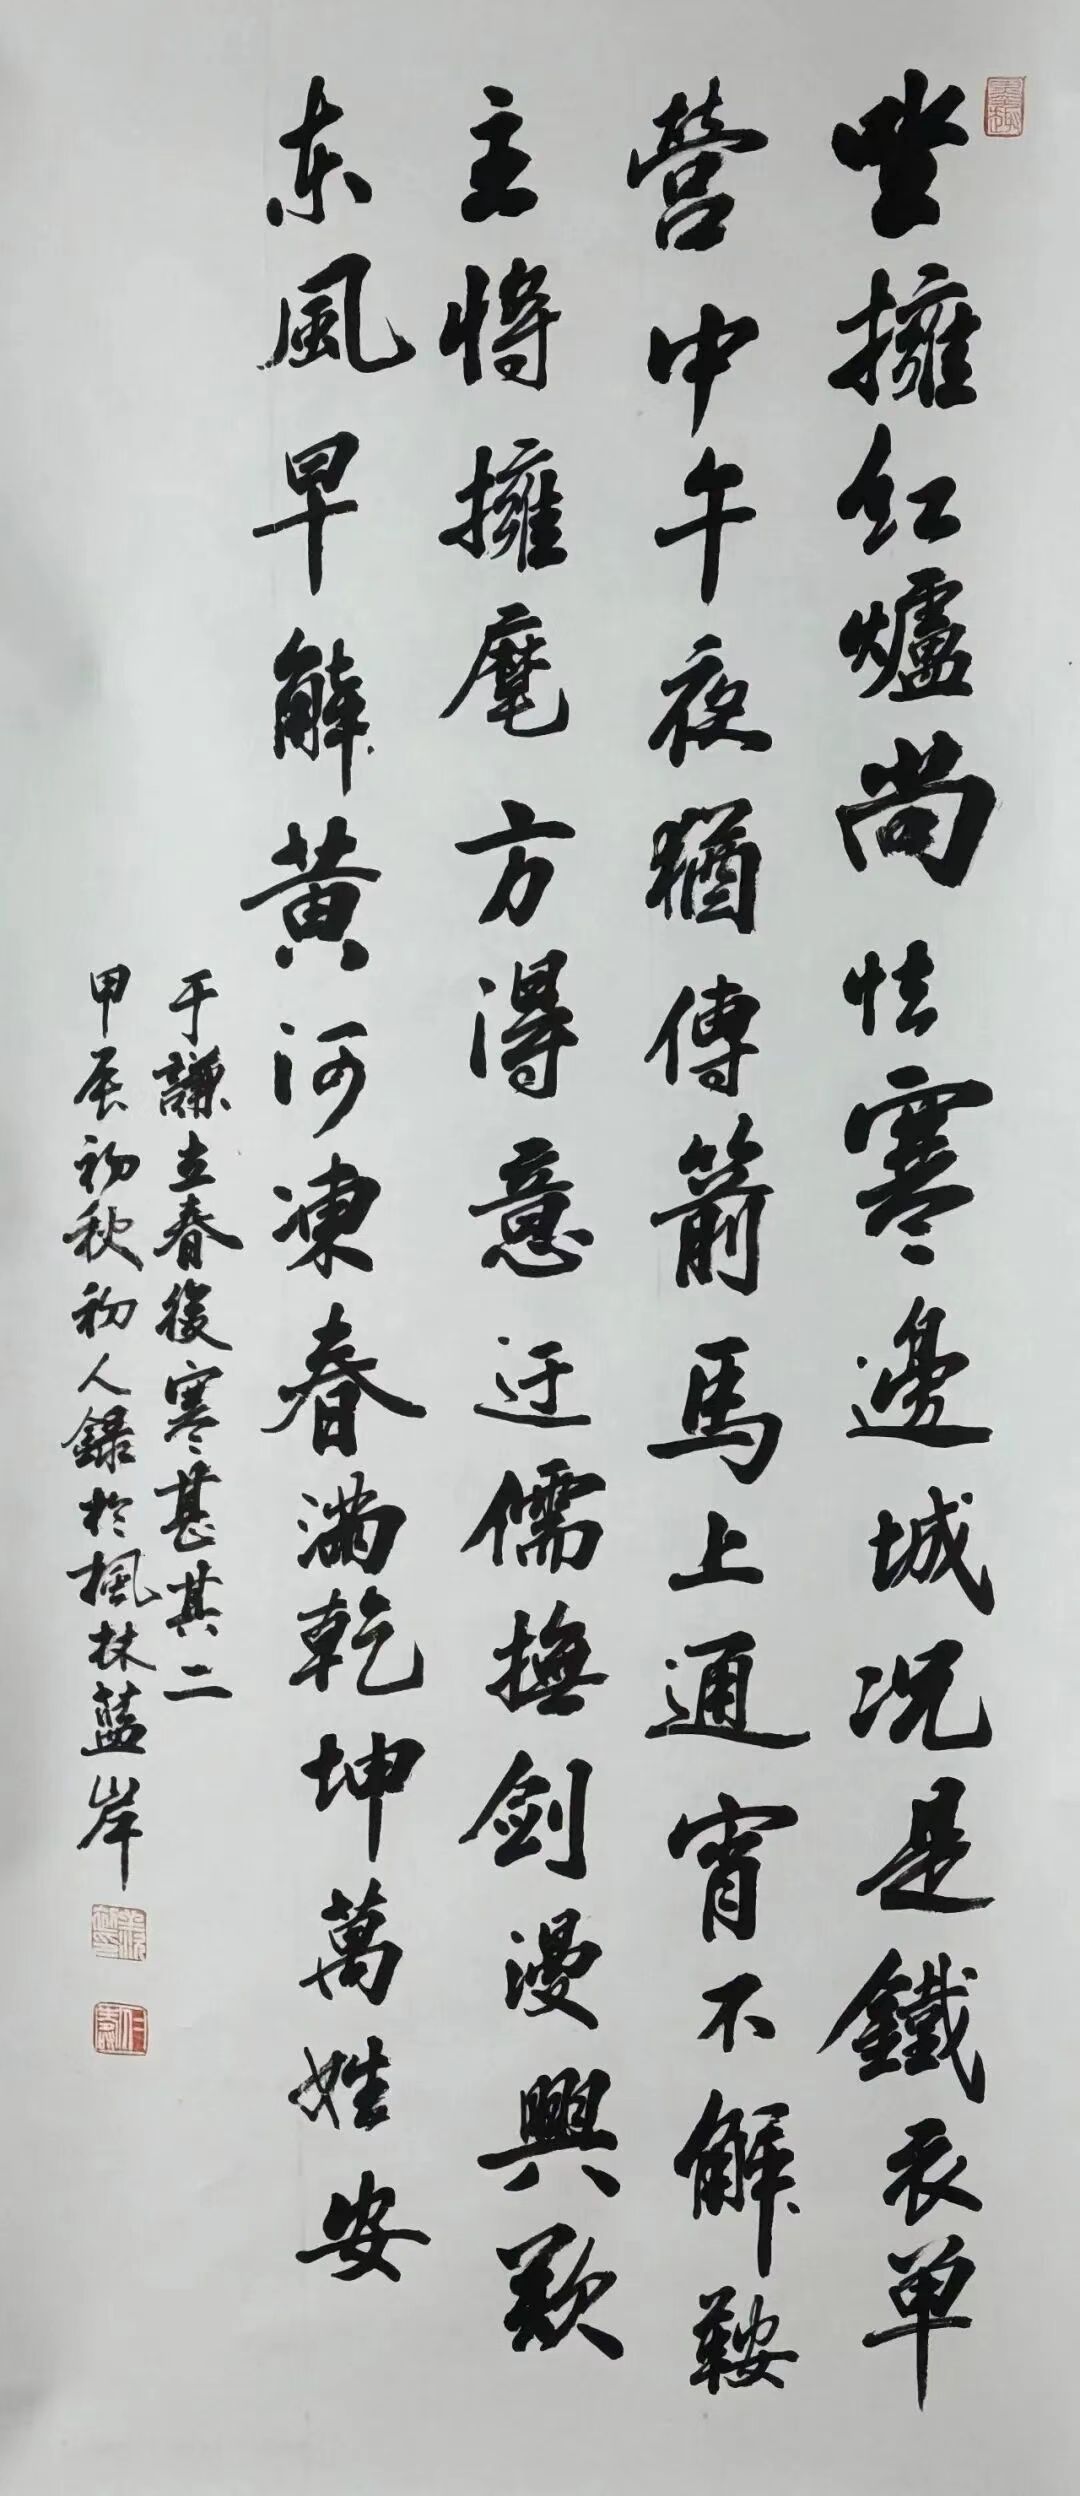 坐擁紅爐尚怯寒邊城況是鐵衣單
營中午夜猶傳箭馬上通宵不解鞍
主將擁麾方得意迂儒撫劍漫興歎
东風早解黃河凍春滿乾坤萬姓安
于謙立春後寒甚其二
甲辰初秋初人錄於楓林藍岸